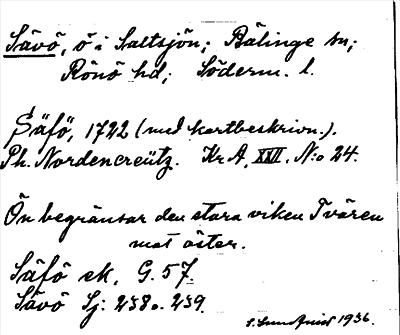 Sävö, ö i Saltsjön; Bälinge sn;
Rönö hd; Söderm. l.
Säfö, 1722 (med kartbeskrivn.).
Ph. Nordencreütz. Kr A, XXII. N:o 24.
Ön begränsar den stora viken Tvären
mot öster.
Säfö ek. G. 57.
Sävö Sj: 238 o. 239.
S. Lundqvist 1936.